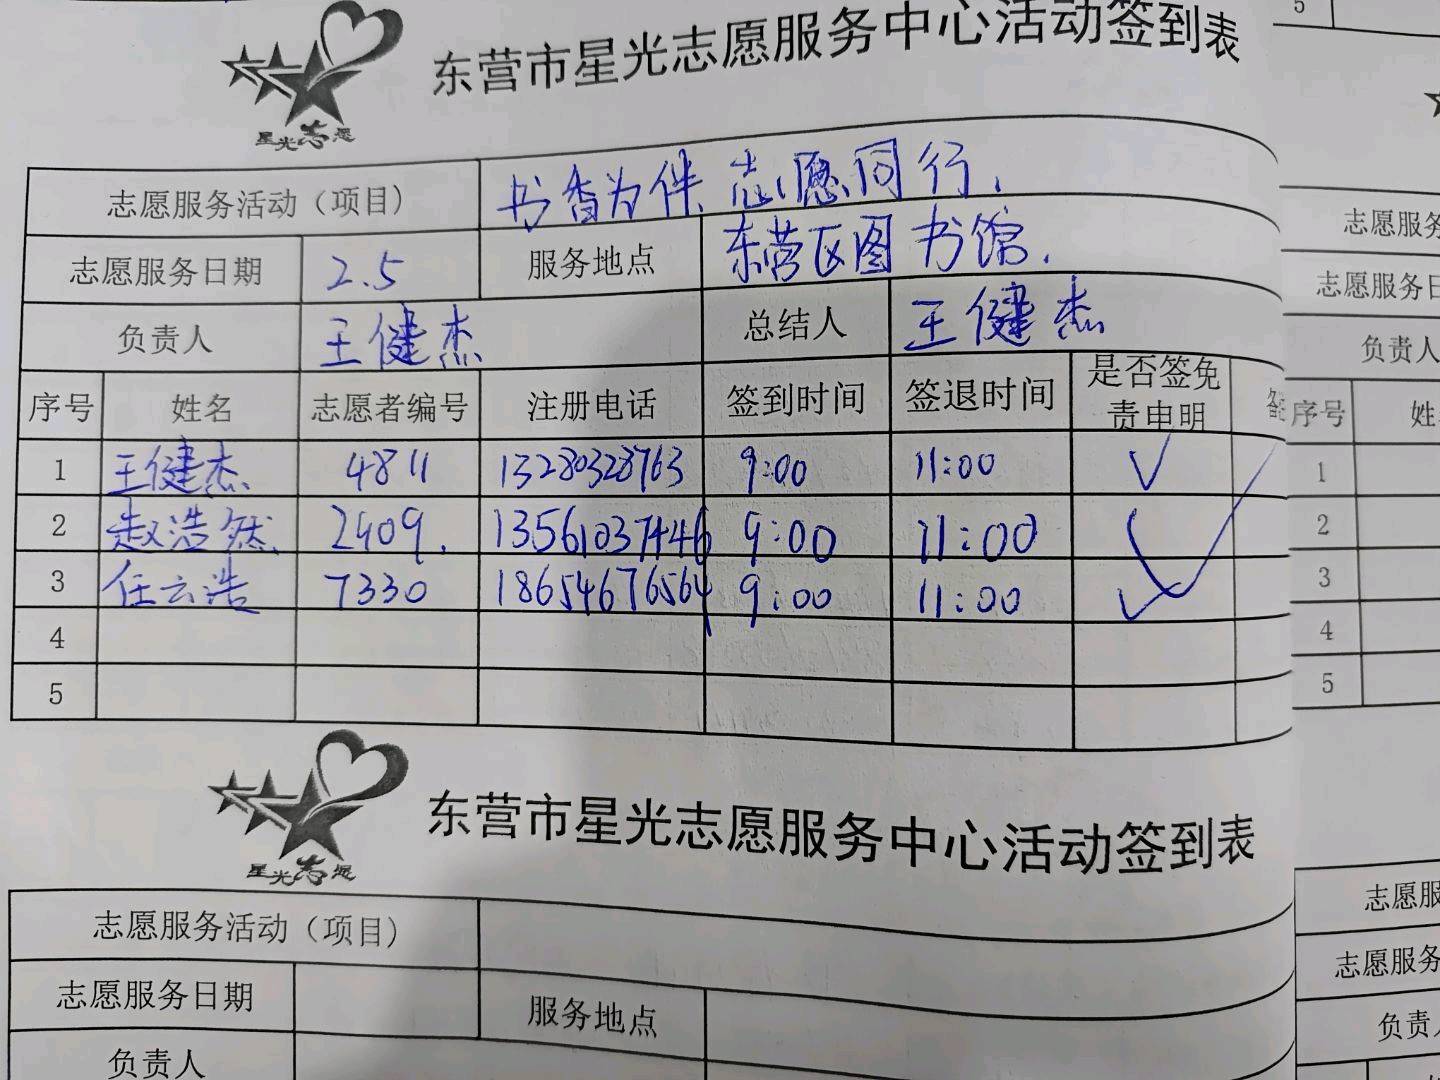 东营市星光志愿服务中心活动签到表
星光志愿
志愿服务活动（项目） 书香为伴 志愿同行.
志愿服务日期 2.5 服务地点 东营区图书馆.
负责人 王健杰 总结人 王健杰
序号 姓名 志愿者编号 注册电话 签到时间 签退时间 是否签免责申明
1 王健杰 4811 13280328763 9:00 11:00 √
2 赵浩然 2409. 13561037446 9:00 11:00 √
3 任云浩 7330 18654676564 9:00 11:00 √
4
5
东营市星光志愿服务中心活动签到表
星光志愿
志愿服务活动（项目）
志愿服务日期 服务地点
负责人
5
志愿服务
志愿服务日
负责人
序号 姓
1
2
3
4
5
志愿服
志愿服务
负责